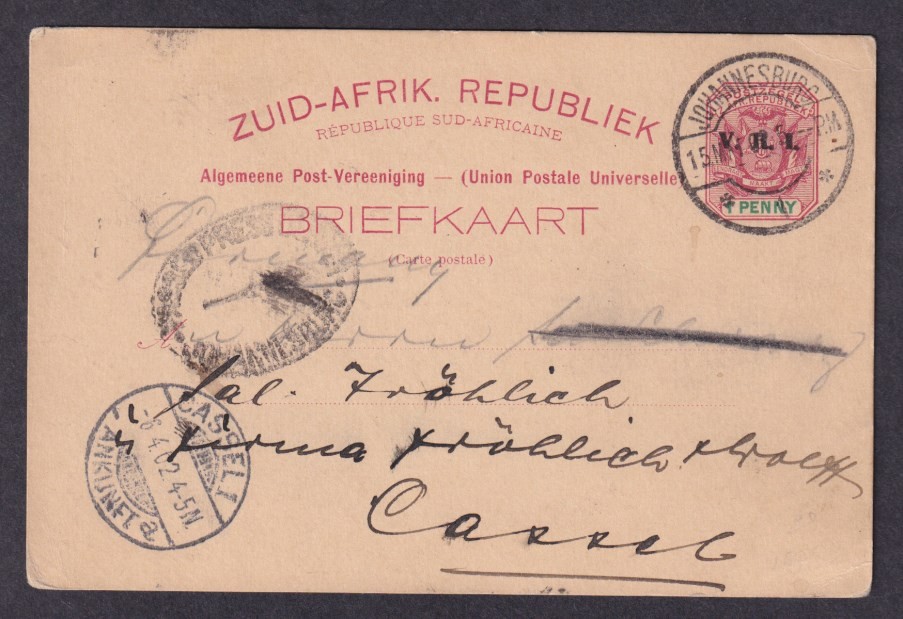 ZUID-AFRIK. REPUBLIEK
RÉPUBLIQUE SUD-AFRICAINE
Algemeene Post-Vereeniging — (Union Postale Universelle
BRIEFKAART
(Carte postale)
JOHANNESBURG
15 PM
POSTZEGEL
V. R. I.
1 PENNY
Germany
PRESS
JOHANNESBURG
An Herrn
Sal. Fröhlich
ü Firma Fröhlich & Wolff
Cassel
CASSEL 1
-8.4.02.4-5N.
ANKUNFT a